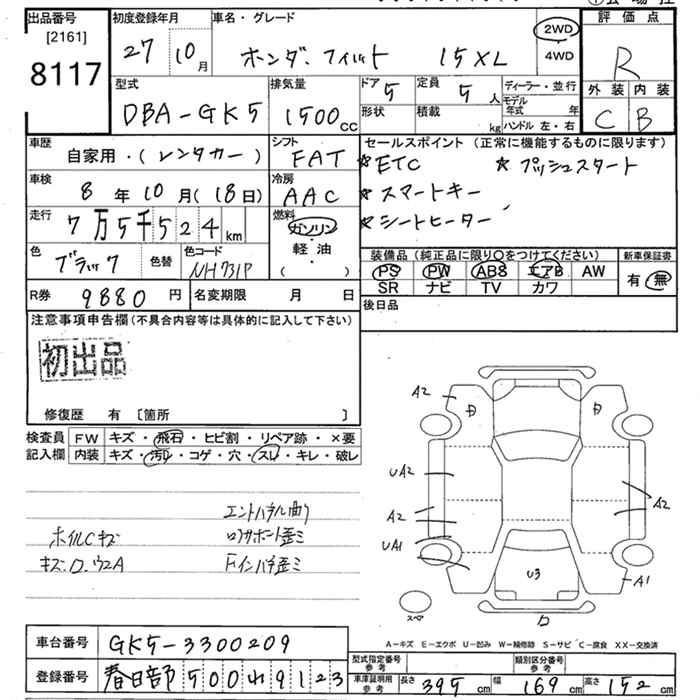 出品番号 初度登録年月 車名・グレード 評価点
[2161]
8117 27 10月 ホンダ フィット 15XL 2WD 4WD R
型式 排気量 ドア 5 定員 5人 ディーラー・並行 外装 内装
DBA-GK5 1500cc 形状 積載 kg モデル年式 年 C B
ハンドル 左・右
車歴 自家用・(レンタカー) シフト FAT セールスポイント (正常に機能するものに限ります)
★ETC ★プッシュスタート
車検 8年 10月 (18日) 冷房 AAC ★スマートキー
走行 7万5千524km 燃料 ガソリン・軽油・( ) ★シートヒーター
色 ブラック 色替 色コード NH731P
装備品 (純正品に限り〇をつけてください) 新車保証書
PS PW ABS エアB AW 有・無
SR ナビ TV カワ
R券 9880円 名変期限 月 日 後日品
注意事項申告欄(不具合内容等は具体的に記入して下さい)
初出品
修復歴 有 [箇所 ]
検査員 FW キズ・飛石・ヒビ割・リペア跡・×要
記入欄 内装 キズ・汚レ・コゲ・穴・スレ・キレ・破レ
ホイルCキズ
A2
UA2
A2
UA1
A2
U3
A1
スペア
A-キズ E-エクボ U-凹み W-補修跡 S-サビ C-腐食 XX-交換済
車台番号 GK5-3300209 型式指定番号 参考 類別区分番号 参考
登録番号 春日部 500 わ 9123 車庫証明用 参考 長さ 395cm 幅 169cm 高さ 152cm